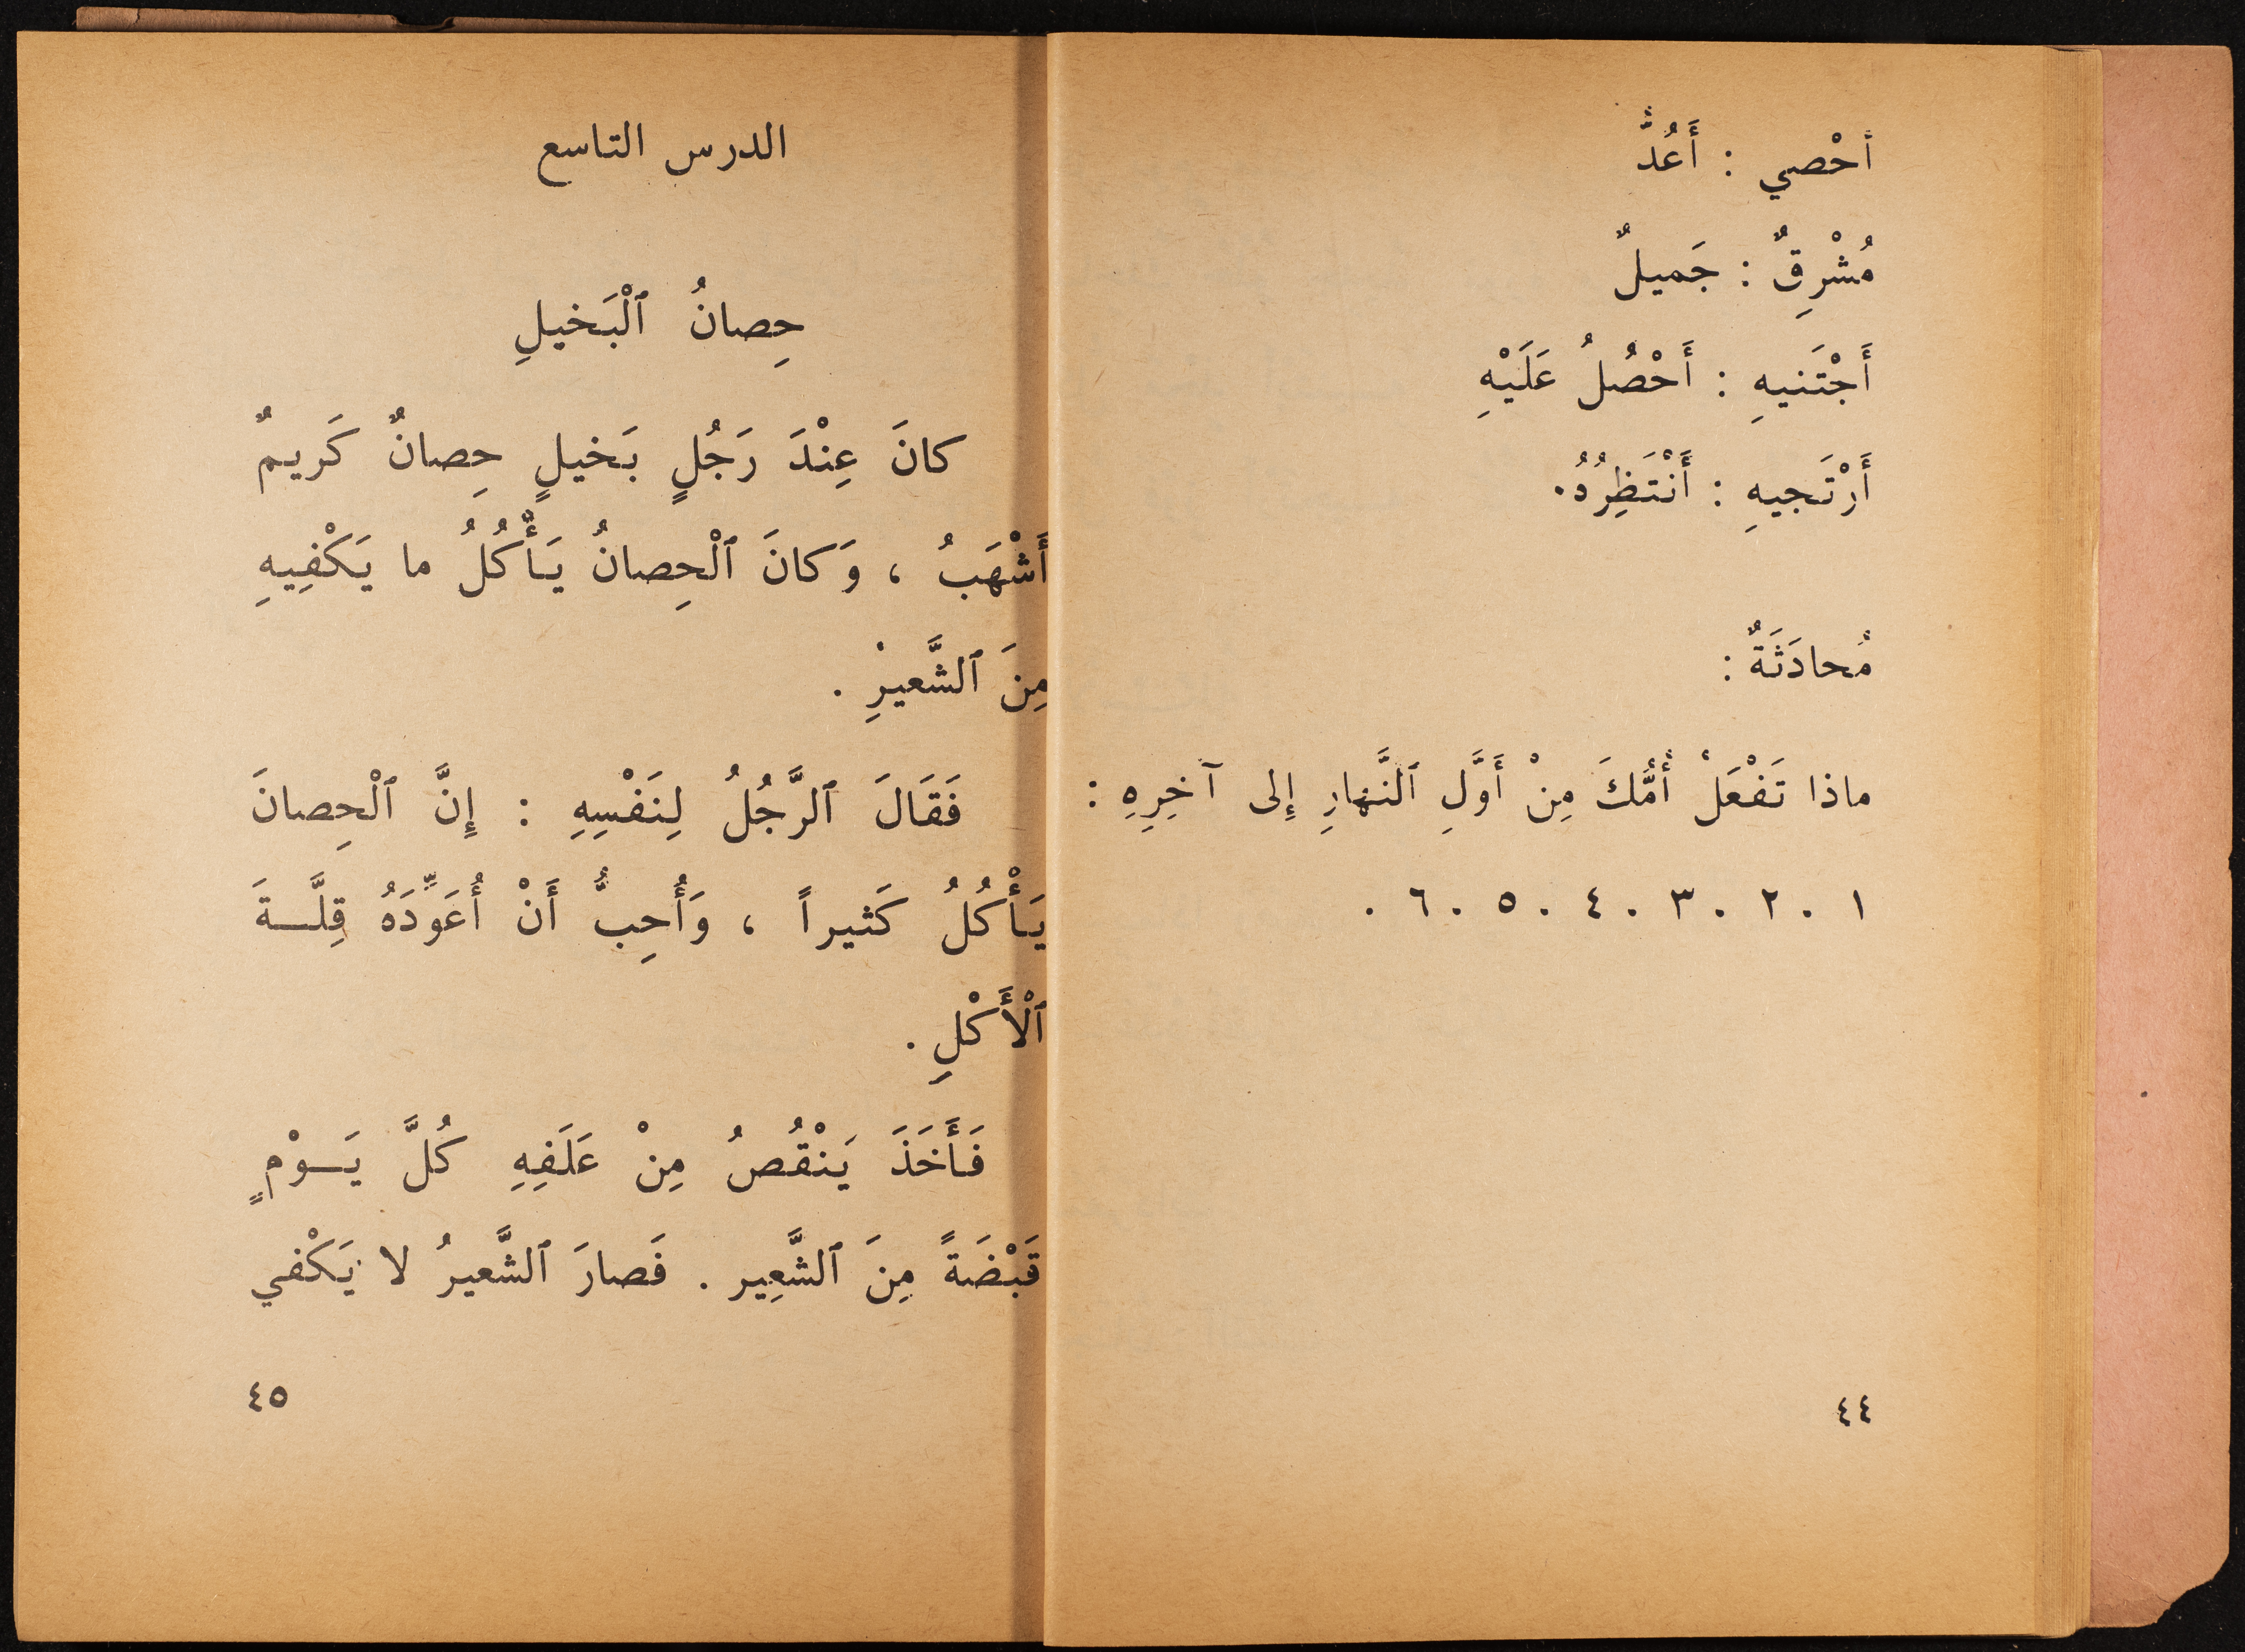 أحْصي : أَعُدُّ
مُشْرِقٌ : جَميلٌ
أَجْتَنيهِ : أَحْصُلُ عَلَيْهِ
أَرْتَجيهِ : أَنْتَظِرُهُ.
مُحادَثَةٌ :
ماذا تَفْعَلُ أُمُّكَ مِنْ أَوَّلِ ٱلنَّهارِ إِلى آخِرِهِ :
١ . ٢ . ٣ . ٤ . ٥ . ٦ .
٤٤
الدرس التاسع
حِصانُ ٱلْبَخيلِ
كانَ عِنْدَ رَجُلٍ بَخيلٍ حِصانٌ كَريمٌ
أَشْهَبُ ، وَكانَ ٱلْحِصانُ يَأْكُلُ ما يَكْفِيهِ
مِنَ ٱلشَّعيرِ .
فَقَالَ ٱلرَّجُلُ لِنَفْسِهِ : إِنَّ ٱلْحِصانَ
يَأْكُلُ كَثيراً ، وَأُحِبُّ أَنْ أُعَوِّدَهُ قِلَّـةَ
ٱلْأَكْلِ .
فَأَخَذَ يَنْقُصُ مِنْ عَلَفِهِ كُلَّ يَـوْمٍ
قَبْضَةً مِنَ ٱلشَّعِير . فَصارَ ٱلشَّعيرُ لا يَكْفي
٤٥